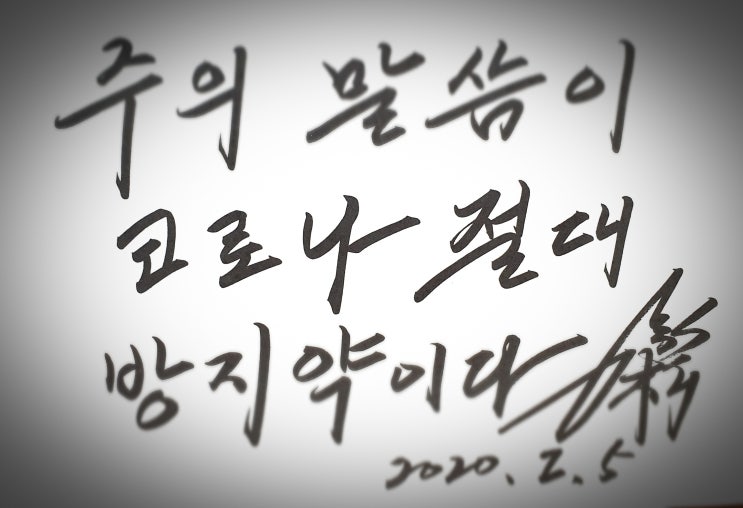 주의 말씀이
코로나 절대
방지약이다
2020. 2. 5